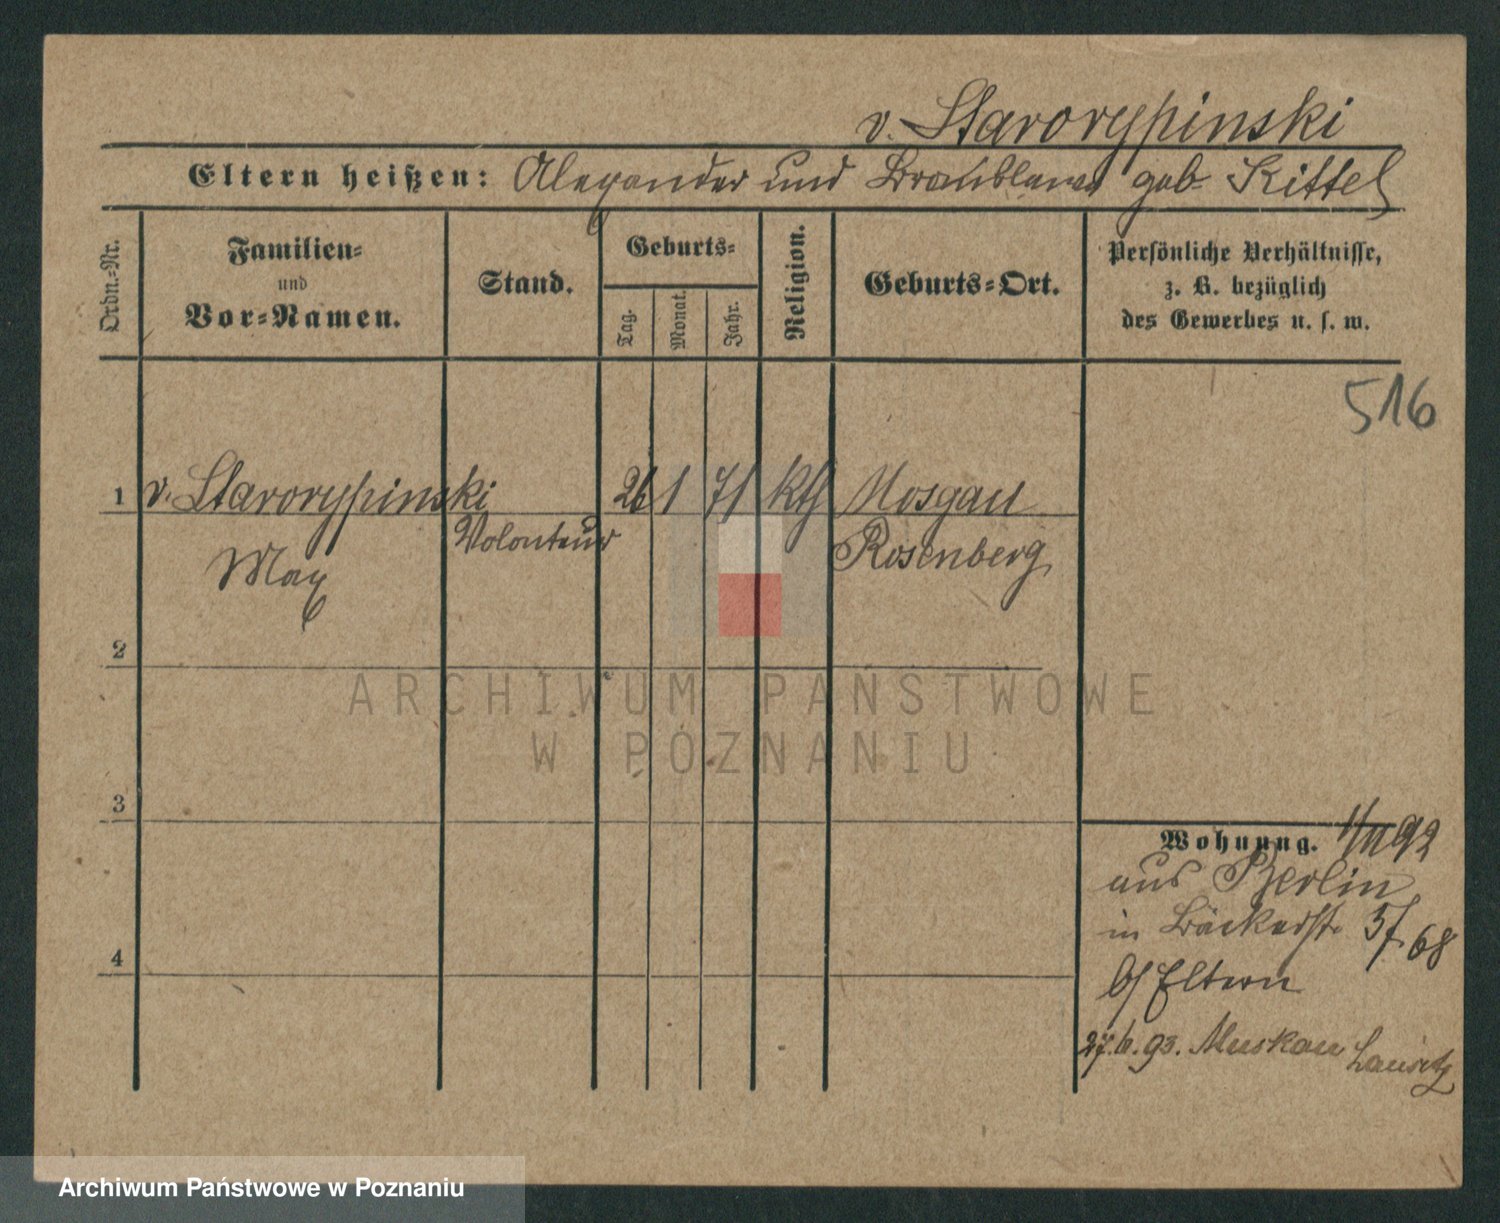 v. Starorypinski
Eltern heißen: Alexander und geb. Kittel
Ordn.-Nr.
Familien-
und
Vor-Namen.
Stand.
Geburts-
Tag.
Monat.
Jahr.
Religion.
Geburts-Ort.
Persönliche Verhältnisse,
z. B. bezüglich
des Gewerbes u. s. w.
516
1 v. Starorypinski 26 1 71 kth Mosgau
Max Volonteur Rosenberg
2
3
4
Wohnung. 1/11 92
aus Berlin
in Bäckerstr. 5/7 68
b/ Eltern
27.6.93. Muskau Lausitz
ARCHIWUM PAŃSTWOWE
W POZNANIU
Archiwum Państwowe w Poznaniu